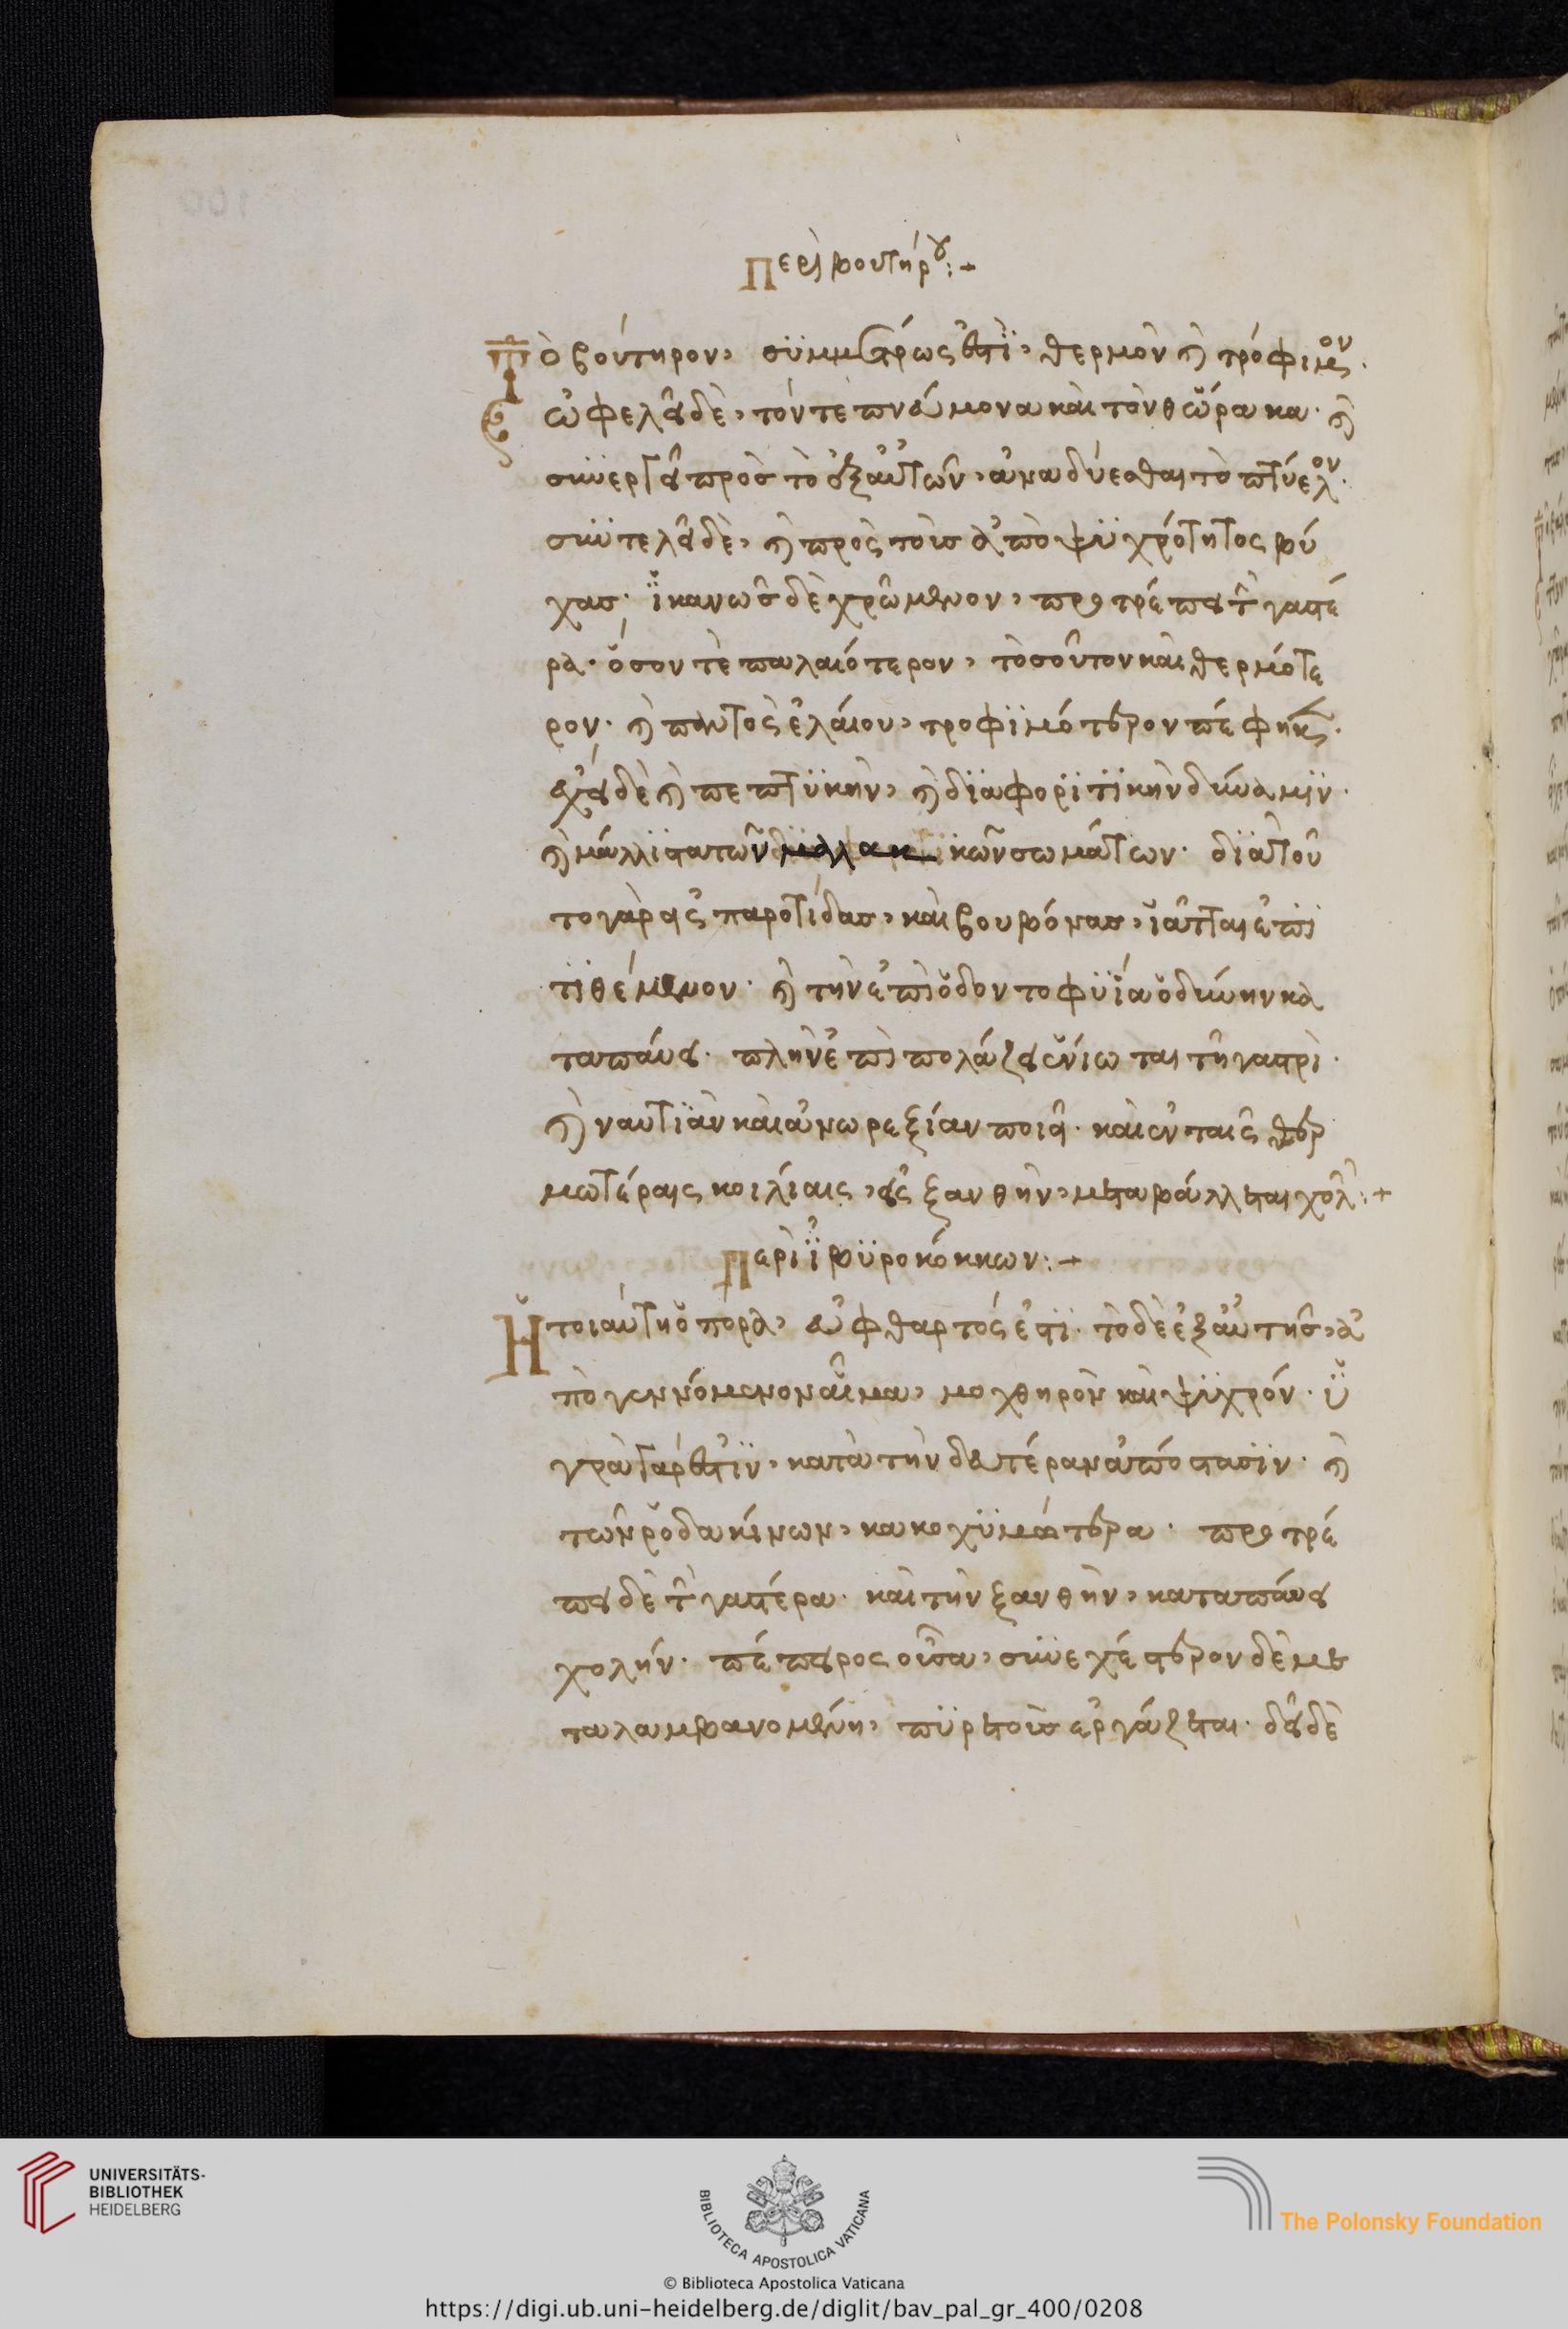 Περὶ βουτήρου:+
Τὸ βούτηρον, σϋμμέτρως ἐστὶ, θερμὸν καὶ τρόφιμον.
ὠφελεῖ δὲ, τόν τε πνεύμονα καὶ τὸν θώρακα. καὶ
συνεργεῖ πρὸσ τὸ ἐξ αὐτῶν, ἀναδύεσθαι τὸ πτύελον.
συντελεῖ δὲ, καὶ πρὸς τοὺσ ἀπὸ ψϋχρότητος βύ
χασ. ἱκανῶσ δὲ χρώμενον, προτρέπει τὴν γαστέ
ρα. ὅσον τε παλαιότερον, τοσοῦτον καὶ θερμότε
ρον. καὶ παντὸς ἐλαίου, τροφϊμότερον πέφηκε.
ἔχει δὲ καὶ πεπτϋκὴν, καὶ διαφορϊτϊκὴν δύναμϊν.
καὶ μάλλϊστα τῶν μαλακϊκῶν σωμάτων. διὰ τοῦ
το γὰρ εἰς παροτίδασ, καὶ βουβόνασ, ἰᾶται ἐπι
τϊθέμενον. καὶ τὴν ἐπὶ ὄδοντοφϋΐα ὀδύνην κα
ταπάυει. πλὴν ἐπιπολάζει ἐνίωται τῆ γαστρὶ.
καὶ ναυτϊὰν καὶ ἀνωρεξίαν ποιεῖ. καὶ ἐν ταῖς θερ
μωτέραις κοιλίαις, εἰς ξανθὴν, μεταβάλλεται χολὴν:+
Περὶ ἰ̈βϋροκόκκων:+
Ἡ τοιαύτη ὀπορὰ, εὔφθαρτός ἐστϊ. τὸ δὲ ἐξ αὐτῆσ, ἀ
πογεννόμενον αἷμα, μοχθηρὸν καὶ ψϋχρόν. ὑ
γρὰ γάρ ἐστϊν, κατὰ τὴν δευτέραν ἀπόστασϊν. καὶ
τῶν ῥοδακίνων, κακοχϋμότερα. προτρέ
πει δὲ τὴν γαστέρα. καὶ τὴν ξανθὴν, καταπάυει
χολήν. πέπειρος οὖσα, συνεχέστερον δὲ με
ταλαμβανομένη, πϋρετοὺσ ἐργάζεται. δεῖ δὲ
UNIVERSITÄTS-
BIBLIOTHEK
HEIDELBERG
BIBLIOTECA APOSTOLICA VATICANA
The Polonsky Foundation
© Biblioteca Apostolica Vaticana
https://digi.ub.uni-heidelberg.de/diglit/bav_pal_gr_400/0208